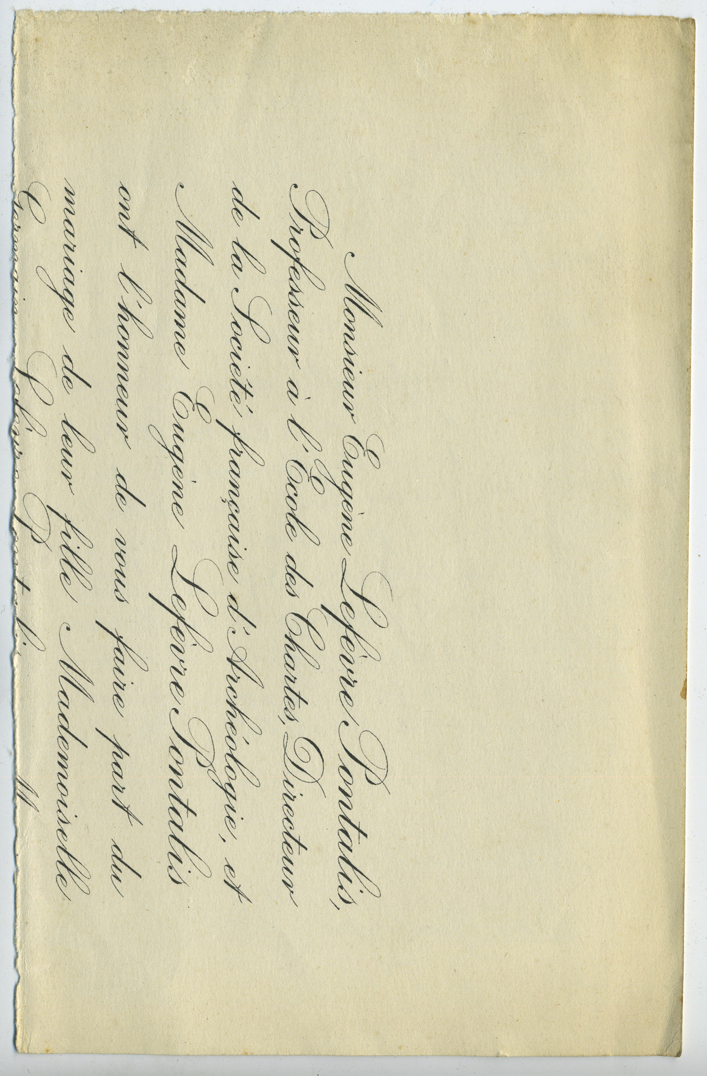 Monsieur Eugène Lefèvre Pontalis,
Professeur à l'Ecole des Chartes, Directeur
de la Société française d'Archéologie, et
Madame Eugène Lefèvre Pontalis
ont l'honneur de vous faire part du
mariage de leur fille Mademoiselle
Germaine Lefèvre Pontalis